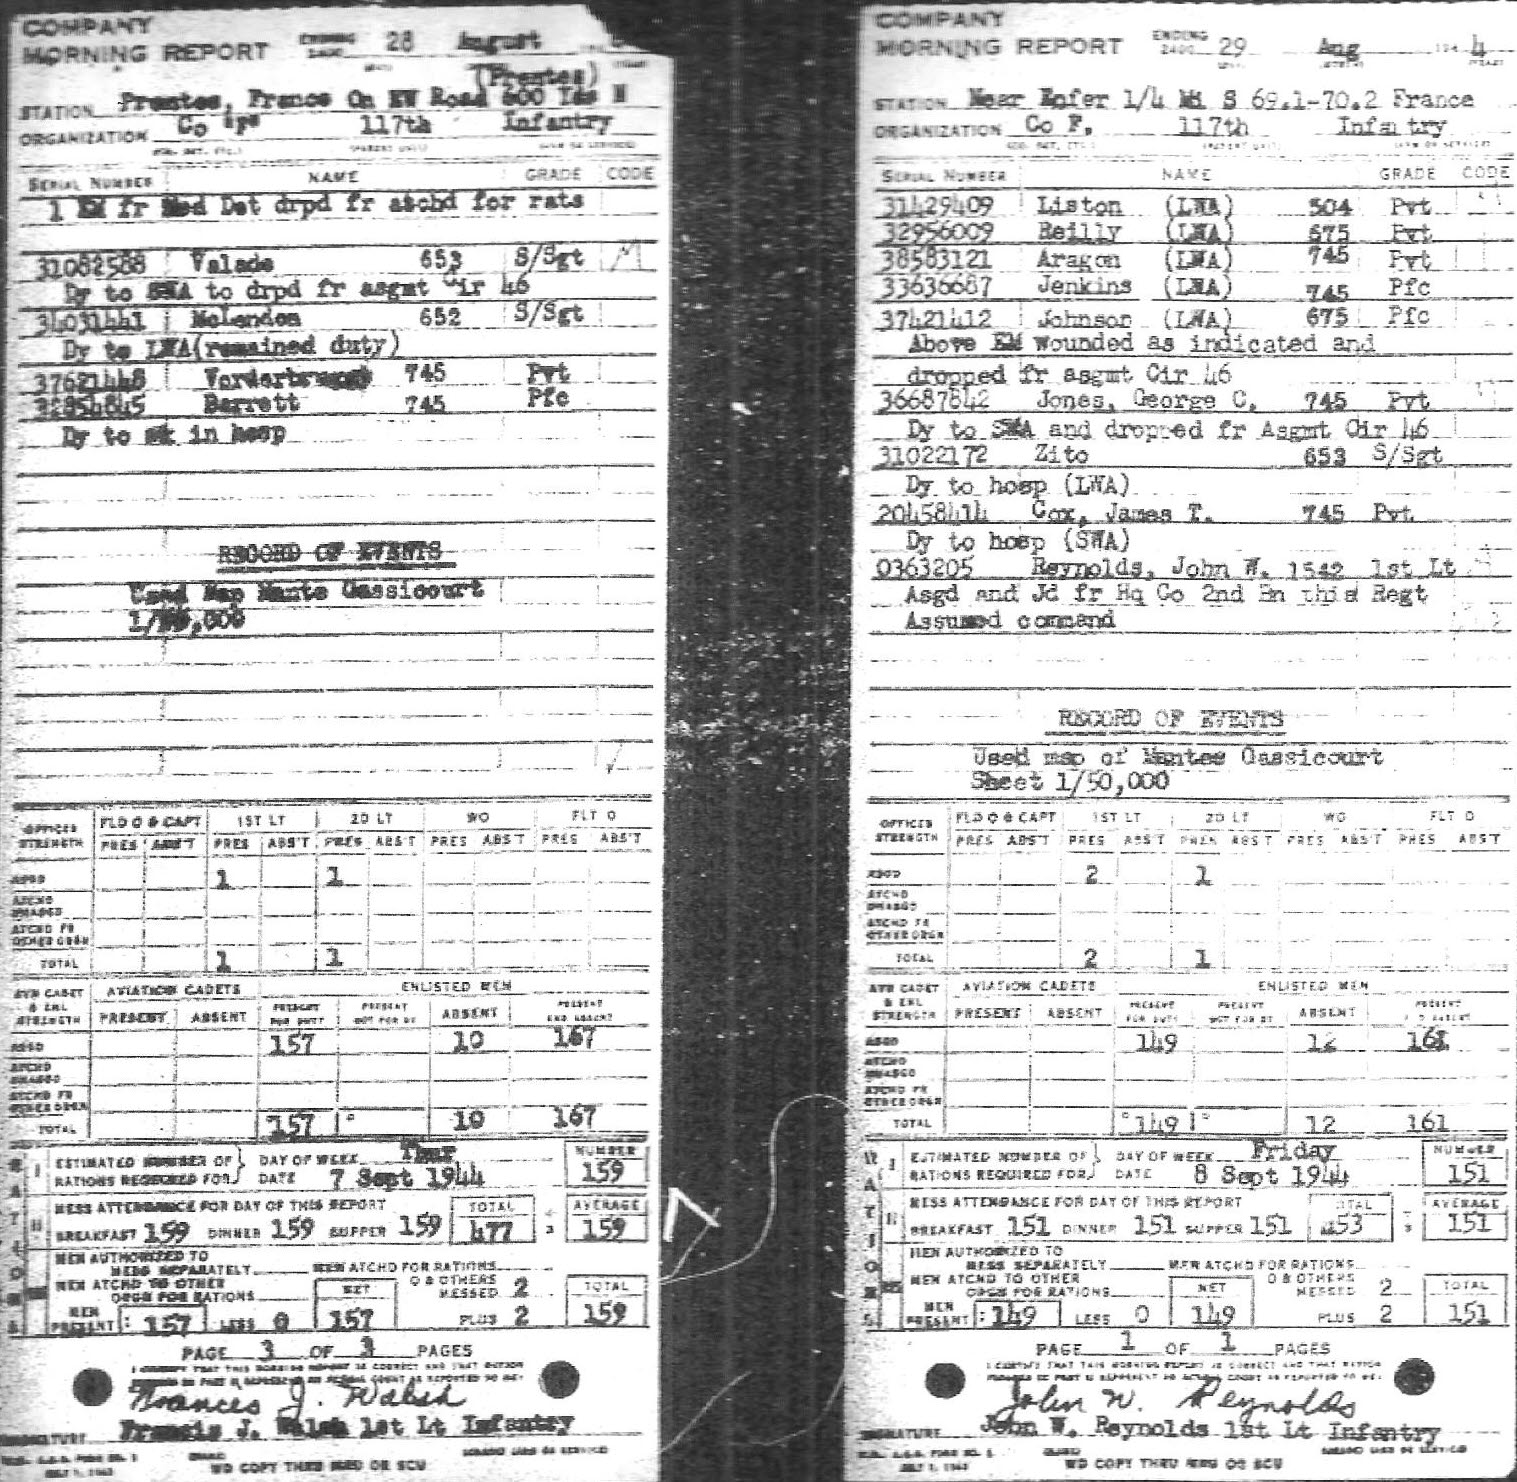 COMPANY
MORNING REPORT ENDING 2400 28 August
(Prestes)
STATION Prestes, France On NW Road 600 Yds N
ORGANIZATION Co "F" 117th Infantry
SERIAL NUMBER NAME GRADE CODE
1 EM fr Med Det drpd fr atchd for rats
31082588 Valade 653 S/Sgt
Dy to SWA to drpd fr asgmt Cir 46
34031441 McLendon 652 S/Sgt
Dy to LWA(remained duty)
37621448 745 Pvt
32854845 Barrett 745 Pfc
Dy to sk in hosp
RECORD OF EVENTS
Used Map Mante Gassicourt
OFFICER STRENGTH FLD O & CAPT 1ST LT 2D LT WO FLT O
PRES ABS'T PRES ABS'T PRES ABS'T PRES ABS'T PRES ABS'T
ASGD 1 1
ATCHD UNASGD
ATCHD FR OTHER ORGN
TOTAL 1 1
AVN CADET & ENL STRENGTH AVIATION CADETS ENLISTED MEN
PRESENT ABSENT PRESENT FOR DUTY PRESENT NOT FOR DY ABSENT PRESENT AND ABSENT
ASGD 157 10 167
ATCHD UNASGD
ATCHD FR OTHER ORGN
TOTAL 157 10 167
RATIONS
I ESTIMATED NUMBER OF RATIONS REQUIRED FOR } DAY OF WEEK Thur NUMBER
DATE 7 Sept 1944 159
II MESS ATTENDANCE FOR DAY OF THIS REPORT TOTAL AVERAGE
BREAKFAST 159 DINNER 159 SUPPER 159 477 ÷ 3 159
MEN AUTHORIZED TO MESS SEPARATELY MEN ATCHD FOR RATIONS
MEN ATCHD TO OTHER ORGN FOR RATIONS NET O & OTHERS MESSED 2 TOTAL
MEN PRESENT: 157 LESS 0 157 PLUS 2 159
PAGE 3 OF 3 PAGES
I CERTIFY THAT THIS MORNING REPORT IS CORRECT AND THAT RATION
Francis J. Walsh
SIGNATURE Francis J. Walsh 1st Lt Infantry
WD COPY THRU MRU OR SCU
COMPANY
MORNING REPORT ENDING 2400 29 Aug 194 4
STATION Near Hofer 1/4 Mi S 69.1-70.2 France
ORGANIZATION Co F. 117th Infantry
SERIAL NUMBER NAME GRADE CODE
31429409 Liston (LWA) 504 Pvt
32956009 Reilly (LWA) 675 Pvt
38583121 Aragon (LWA) 745 Pvt
33636687 Jenkins (LWA) 745 Pfc
37421412 Johnson (LWA) 675 Pfc
Above EM wounded as indicated and
dropped fr asgmt Cir 46
36687842 Jones, George C. 745 Pvt
Dy to SWA and dropped fr Asgmt Cir 46
31022172 Zito 653 S/Sgt
Dy to hosp (LWA)
20458414 Cox, James T. 745 Pvt
Dy to hosp (SWA)
0363205 Reynolds, John W. 1542 1st Lt
Asgd and Jd fr Hq Co 2nd Bn this Regt
Assumed command
RECORD OF EVENTS
Used map of Mantes Gassicourt
Sheet 1/50,000
OFFICER STRENGTH FLD O & CAPT 1ST LT 2D LT WO FLT O
PRES ABS'T PRES ABS'T PRES ABS'T PRES ABS'T PRES ABS'T
ASGD 2 1
ATCHD UNASGD
ATCHD FR OTHER ORGN
TOTAL 2 1
AVN CADET & ENL STRENGTH AVIATION CADETS ENLISTED MEN
PRESENT ABSENT PRESENT FOR DUTY PRESENT NOT FOR DY ABSENT PRESENT
ASGD 149 12 161
ATCHD UNASGD
ATCHD FR OTHER ORGN
TOTAL 149 12 161
RATIONS
I ESTIMATED NUMBER OF RATIONS REQUIRED FOR } DAY OF WEEK Friday NUMBER
DATE 8 Sept 1944 151
II MESS ATTENDANCE FOR DAY OF THIS REPORT TOTAL AVERAGE
BREAKFAST 151 DINNER 151 SUPPER 151 453 ÷ 3 151
MEN AUTHORIZED TO MESS SEPARATELY MEN ATCHD FOR RATIONS
MEN ATCHD TO OTHER ORGN FOR RATIONS NET O & OTHERS MESSED 2 TOTAL
MEN PRESENT: 149 LESS 0 149 PLUS 2 151
PAGE 1 OF 1 PAGES
I CERTIFY THAT THIS MORNING REPORT IS CORRECT AND THAT RATION
John W. Reynolds
SIGNATURE John W. Reynolds 1st Lt Infantry
WD COPY THRU MRU OR SCU